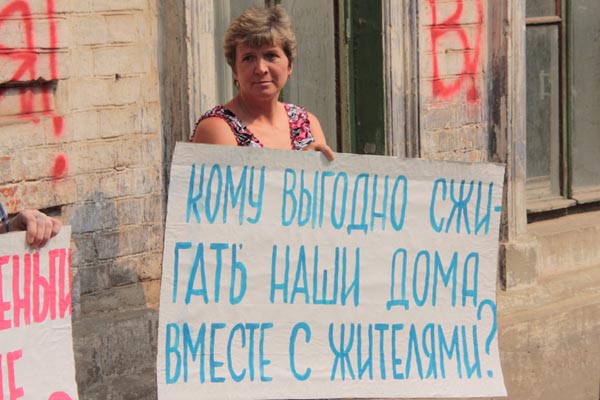 КОМУ ВЫГОДНО СЖИ-
ГАТЬ НАШИ ДОМА
ВМЕСТЕ С ЖИТЕЛЯМИ?